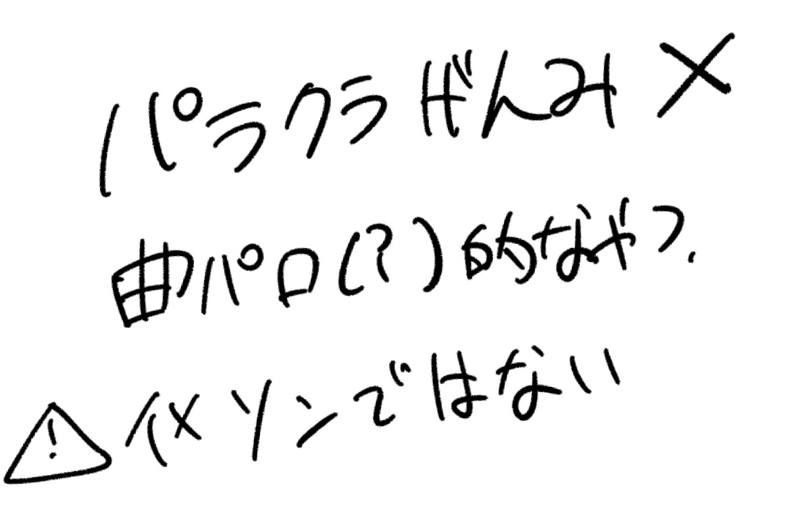 パラクラぜんみ×
曲パロ(?)的なやつ.
⚠イメソンではない